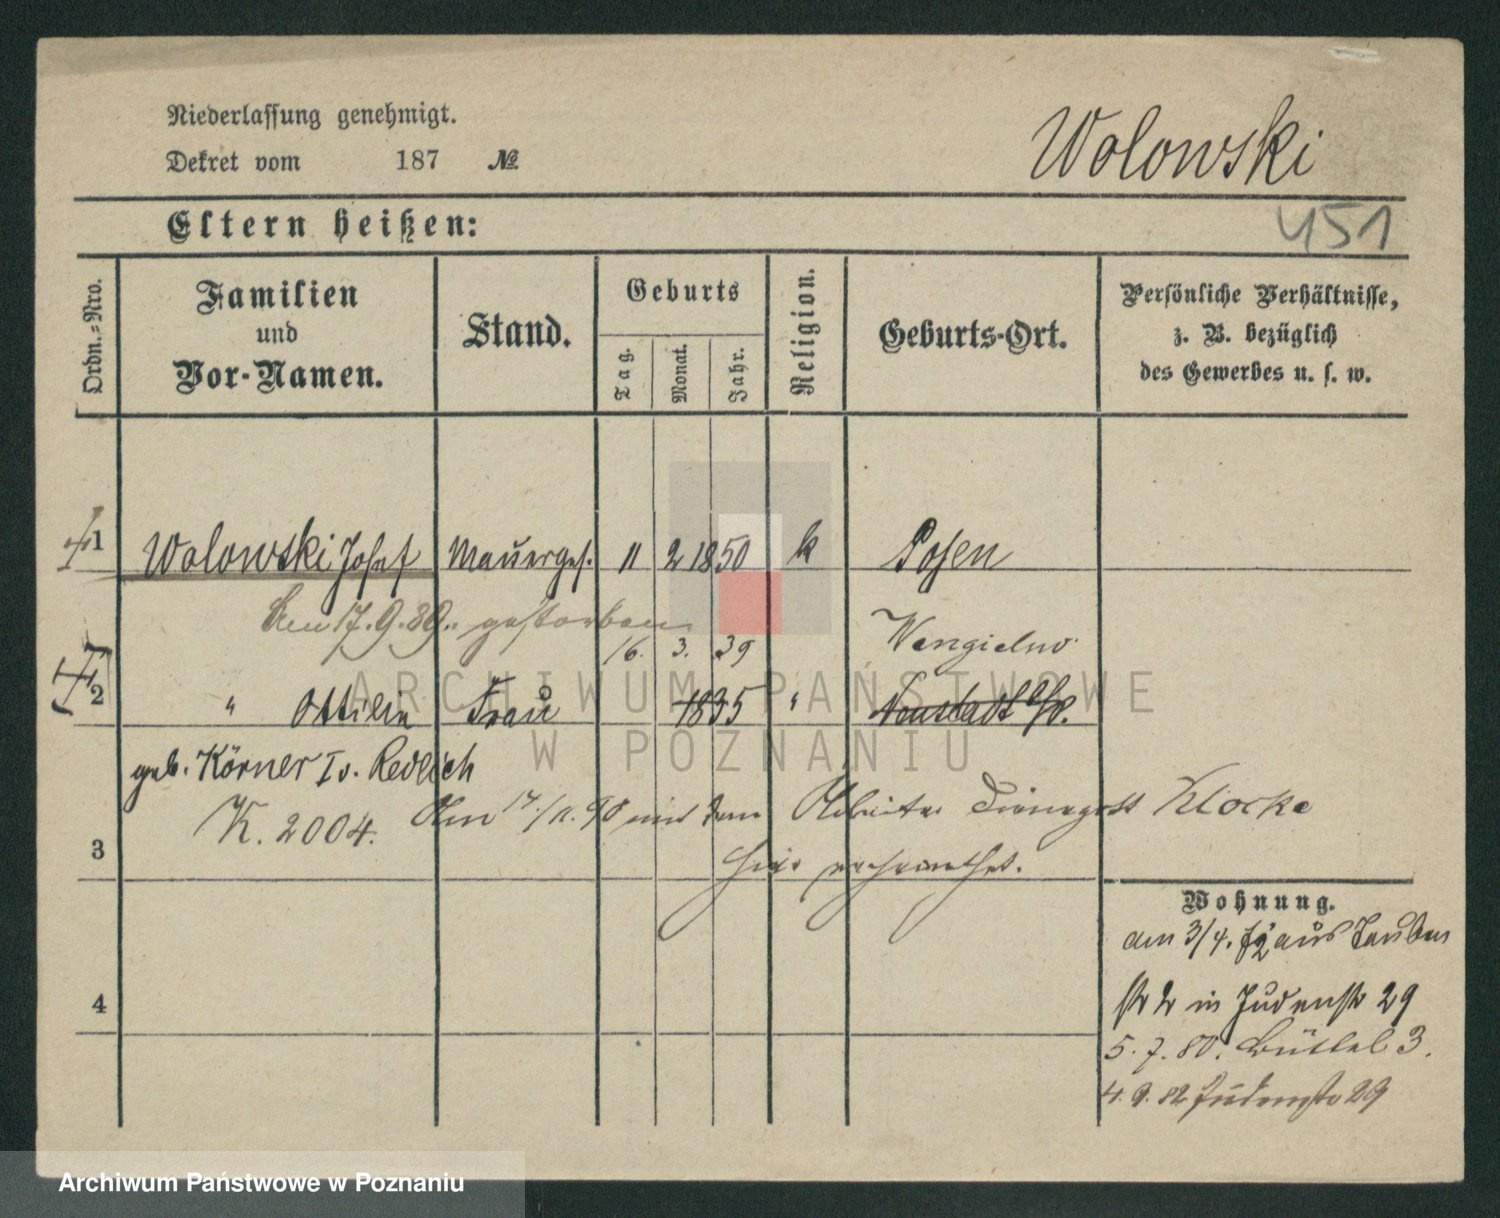 Niederlassung genehmigt.
Dekret vom 187 №
Wolowski
Eltern heißen:
451
Ordn.=Nro.
Familien und Vor-Namen.
Stand.
Geburts
Tag. Monat. Jahr.
Religion.
Geburts-Ort.
Persönliche Verhältnisse,
z. B. bezüglich
des Gewerbes u. s. w.
1 Wolowski Josef Mauerges. 11 2 1850 k Posen
Am 17.9.89. gestorben
16. 3. 39 Wengielno
2 " Ottilie Frau 1835 " Neustadt
geb. Körner I v. Redlich
K. 2004.
Am 17./11. 90 mit dem Arbeiter Klocke
3
hier verheirathet.
Wohnung.
am 3/4. aus Tauben
str 2 in Judenstr 29
4
5. 7. 80. Büttel 3.
4. 9. 82 Judenstr 29
ARCHIWUM PAŃSTWOWE
W POZNANIU
Archiwum Państwowe w Poznaniu